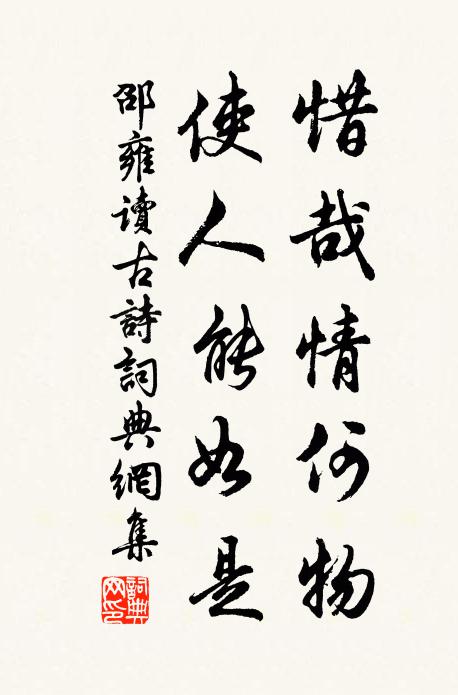 惜哉情何物
使人能如是
邵雍讀古詩詞典網集
詞典網印